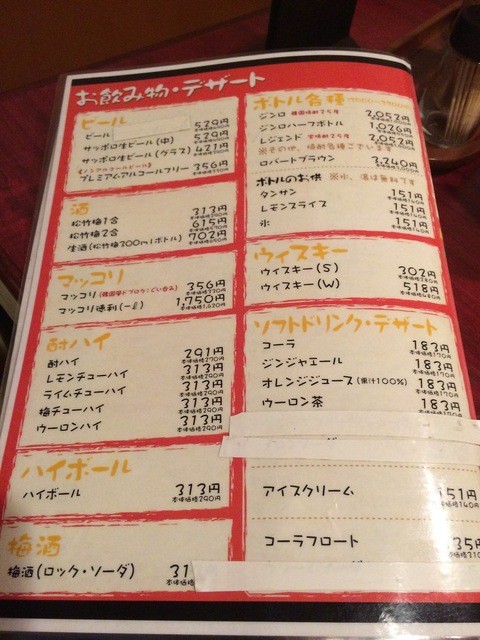 お飲み物・デザート
ビール
ビール 529円
サッポロ生ビール(中) 529円
サッポロ生ビール(グラス) 421円
《ノンアルコールビール》
プレミアムアルコールフリー 356円
酒
松竹梅1合 313円
松竹梅2合 615円
生酒(松竹梅300mlボトル) 702円
マッコリ
マッコリ 356円
マッコリ徳利(一ℓ) 1,750円
本体価格1,620円
酎ハイ
酎ハイ 291円
本体価格270円
レモンチューハイ 313円
本体価格290円
ライムチューハイ 313円
本体価格290円
梅チューハイ 313円
本体価格290円
ウーロンハイ 313円
本体価格290円
ハイボール
ハイボール 313円
本体価格290円
梅酒
梅酒(ロック・ソーダ) 31
本体価格
ボトル各種
ジンロ 韓国焼酎25度 2,052円
ジンロハーフボトル 1,026円
レジェンド 2,052円
※その他、焼酎各種ございます
ロバートブラウン 3,240円
ボトルのお供 ※水、湯は無料です
タンサン 151円
本体価格140円
レモンスライス 151円
本体価格140円
氷 151円
本体価格140円
ウィスキー
ウィスキー(S) 302円
本体価格280円
ウィスキー(W) 518円
本体価格480円
ソフトドリンク・デザート
コーラ 183円
本体価格170円
ジンジャエール 183円
本体価格170円
オレンジジュース(果汁100%) 183円
本体価格170円
ウーロン茶 183円
本体価格170円
アイスクリーム 151円
本体価格140円
コーラフロート 35円